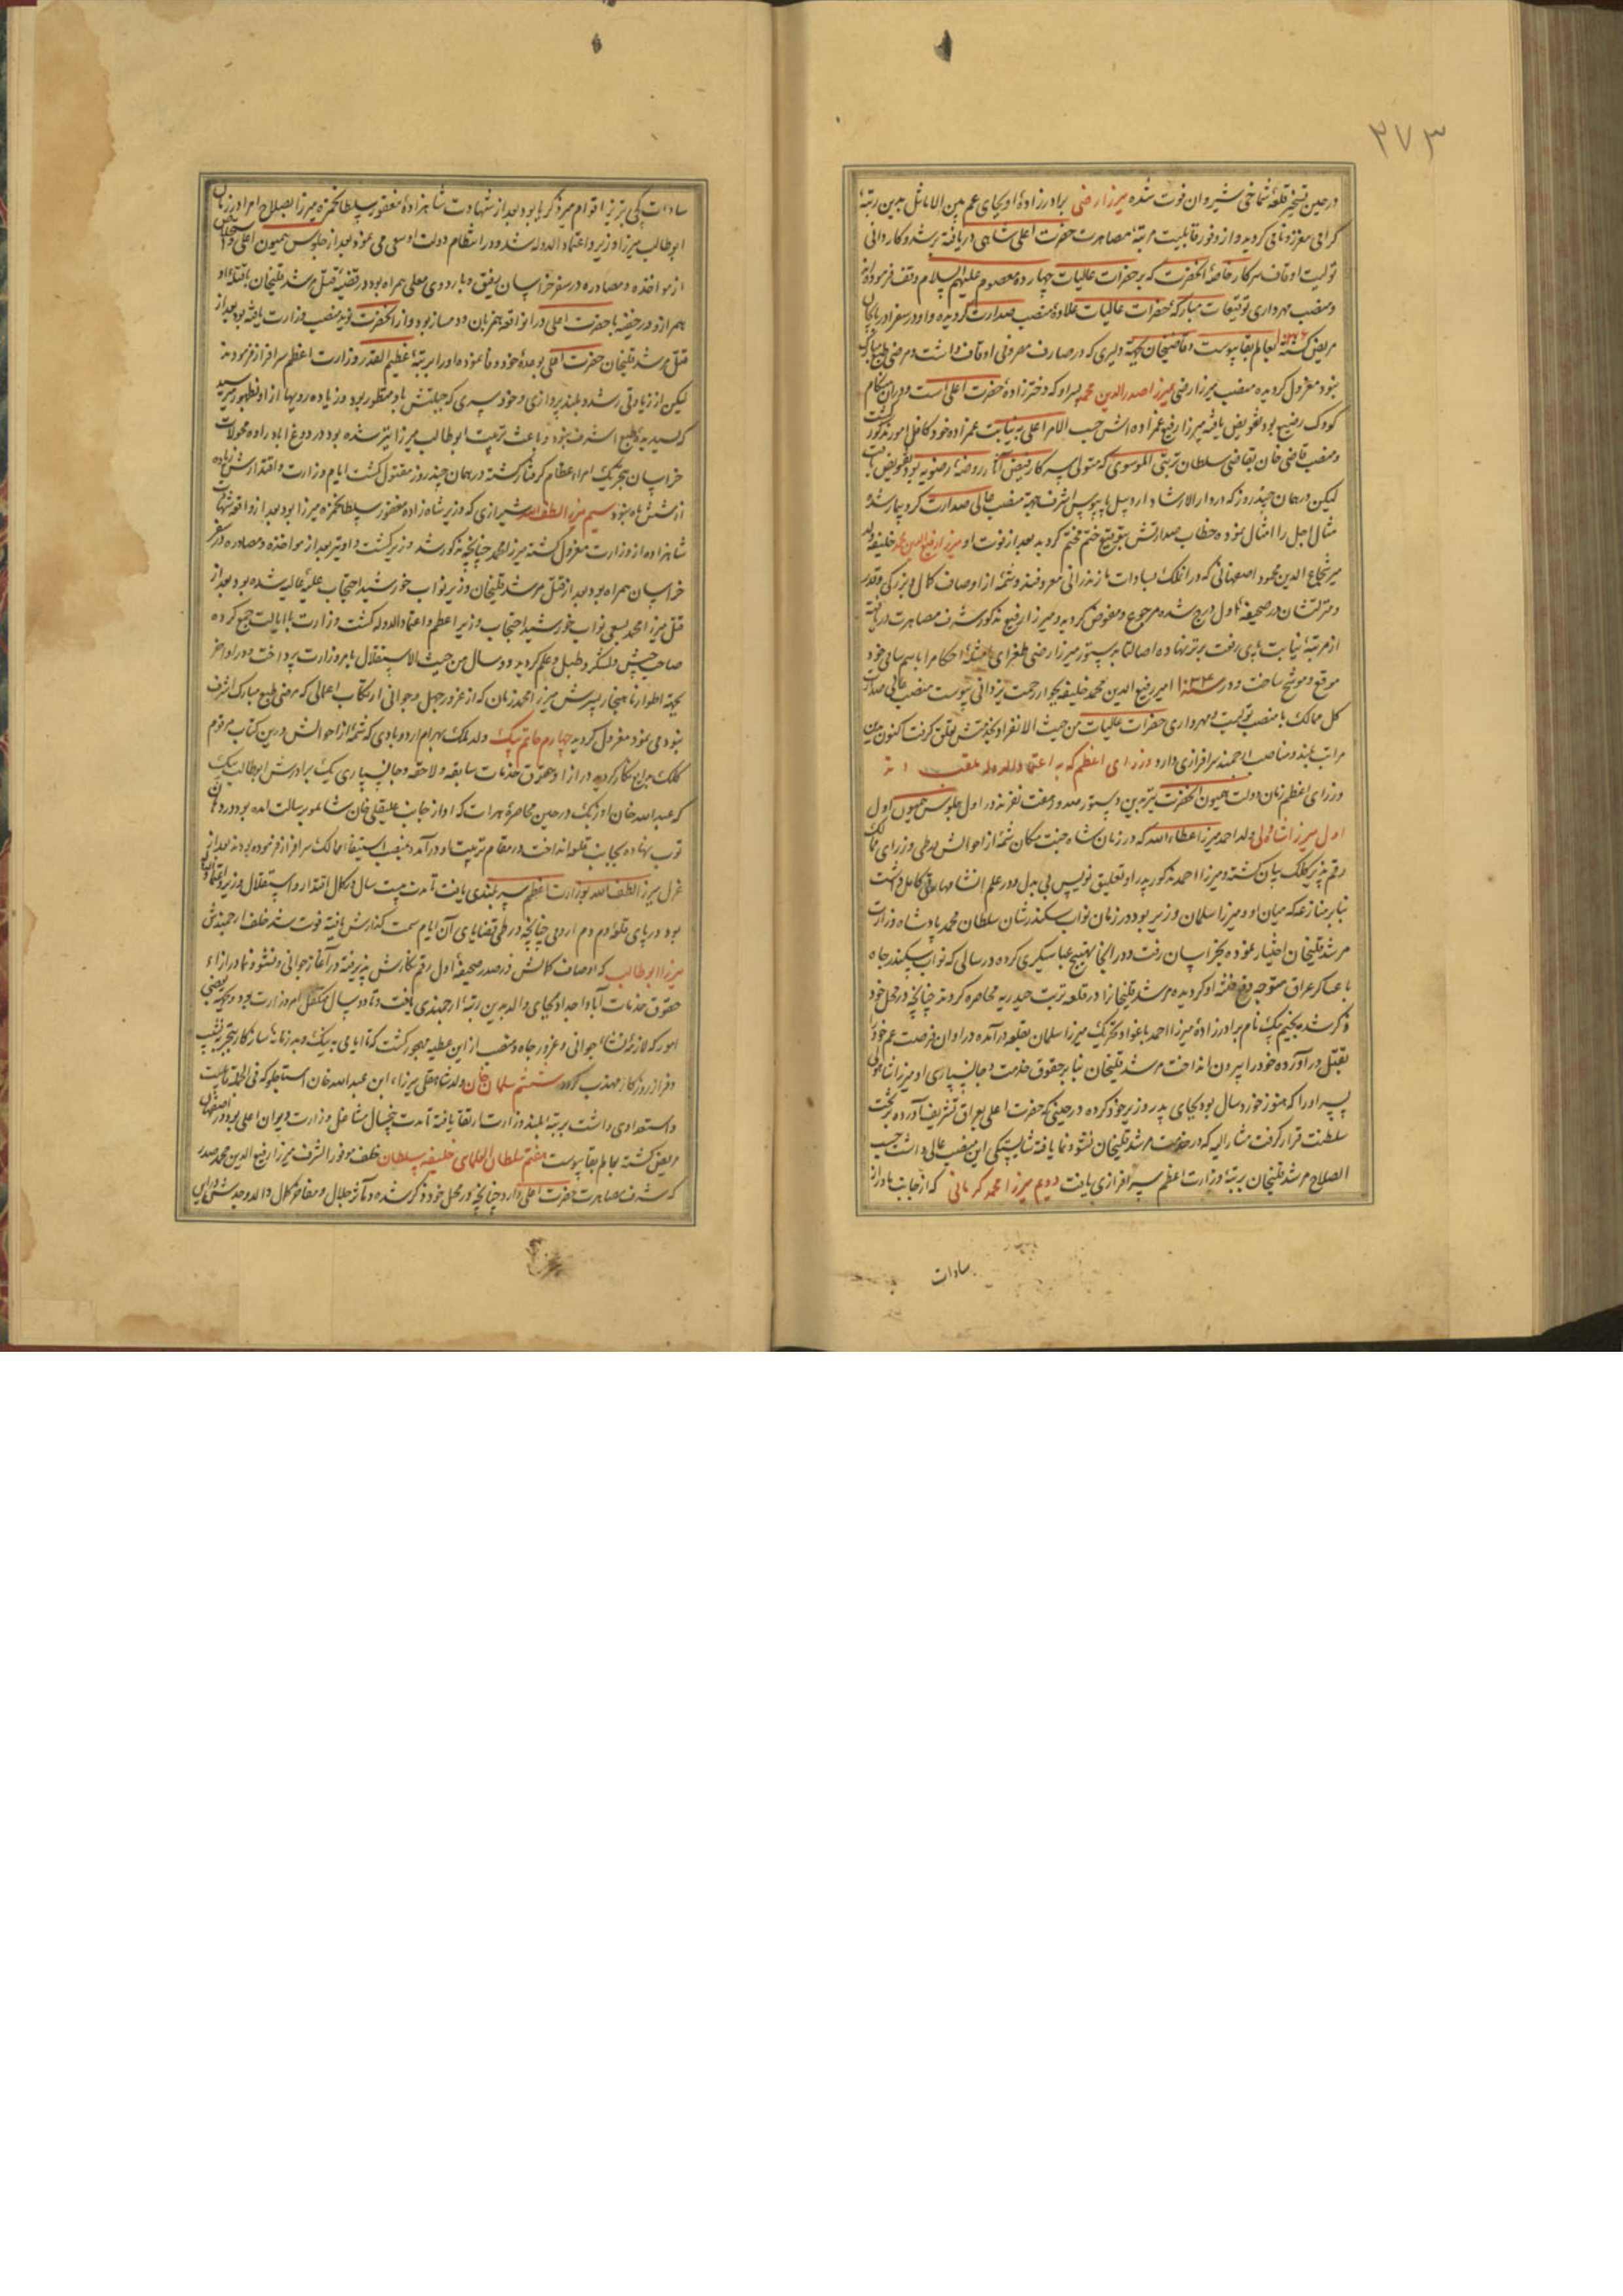 ۳۷۳
در حین تسخیر قلعهٔ شماخی شیروان فوت شده میرزا رضی برادرزادهٔ او بجای عم بین الاماثل بدین رتبهٔ
گرامی معزز و نامی گردیده و از وفور قابلیت مرتبهٔ مصاهرت حضرت اعلی شاهی دریافته برشد و کاردانی
تولیت اوقاف سرکار خاصهٔ آنحضرت که بر حضرات عالیات چهارده معصوم علیهم السلام وقف فرموده‌اند
و منصب مهرداری توقیعات مبارکهٔ حضرات عالیات علاوهٔ منصب صدارت گردیده و او در سفر آذربایجان
مریض گشته بعالم بقا پیوست و قاضیخان بجهة دلیری که در مصارف مصروفی اوقاف داشت و مرضی طبع مبارک
نبود معزول گردیده منصب میرزا رضی بمیرزا صدرالدین محمد پسر او که دخترزادهٔ حضرت اعلی است و در آن هنگام
کودک رضیع بود تفویض یافته میرزا رفیع عمزاده‌اش حسب الامر اعلی به نیابت عمزاده خود کافل امور مذکور گشت
و منصب قاضی خان بقاضی سلطان تربتی الموسوی که متولی سرکار فیض آثار روضهٔ رضویه بود تفویض یافت
لیکن در همان چند روز که در دارالارشاد اردبیل بپابوس اشرف بجهة منصب عالی صدارت گردید بیمار شده
مثال اجل را امتثال نموده خطاب صدارتش بتوقیع ختم مختم گردید بعد از فوت او میرزا رفیع الدین محمد خلیفه ولد
میر شجاع الدین محمود اصفهانی که در آنملک بسادات مازندرانی معروفند و شمهٔ از اوصاف کمال و بزرگی و قدر
و منزلتشان در صحیفهٔ اول درج شده مرجوع و مفوض گردید و میرزا رفیع مذکور شرف مصاهرت دریافته
از مرتبهٔ نیابت پای رفعت برتر نهاده اصالتا بدستور میرزا رضی طغرای امثله احکام را باسم سامی خود
موقع و موشح ساخت و در سنه ۱۰۳۴ امیر رفیع الدین محمد خلیفه بجوار رحمت یزدانی پیوست منصب عالی صدارت
کل ممالک با منصب تولیت و مهرداری حضرات عالیات من حیث الانفراد بخدمتش تعلق گرفت اکنون بدین
مراتب بلند و مناصب ارجمند سرافرازی دارد وزرای اعظم که به اعتماد الدوله ملقب اند
وزرای اعظم زمان دولت همیون آنحضرت نیز بدین دستور صدور هفت نفرند در اول جلوس همیون اول
اول میرزا شاه ولی ولد احمد میرزا عطاء الله که در زمان شاه جنت مکان شمهٔ از احوالش در طی وزرای ممالک
رقم پذیر کلک بیان گشته و میرزا احمد مذکور پدر او تعلیق نویس بی بدل و در علم انشا مهارتی کامل داشت
بنابر منازعه که میان او و میرزا سلمان وزیر بود در زمان نواب سکندرشان سلطان محمد پادشاه وزارت
مرشد قلیخان اختیار نموده بخراسان رفت و در آنجا بهیچ عباسیگری کرده در سالی که نواب سکندر جاه
با عساکر عراق متوجه دفع فتنه او گردیده مرشد قلیخانرا در قلعه تربت حیدریه محاصره کردند چنانچه در محل خود
ذکر شد بکنیم بیک نام برادرزادهٔ میرزا احمد باغوا و تحریک میرزا سلمان بقلعه درآمده در اوان فرصت عم خود را
بقتل درآورده خود را بیرون انداخت مرشد قلیخان بنابر حقوق خدمت و جانسپاری او میرزا شاه ولی
پسر او را که هنوز خورد سال بود بجای پدر وزیر خود کرده در حینی که حضرت اعلی بعراق تشریف آورده بر تخت
سلطنت قرار گرفت مشار الیه که در خدمت مرشد قلیخان نشو و نما یافته شایستگی این منصب عالی داشت حسب
الصلاح مرشد قلیخان برتبهٔ وزارت اعظم سرافرازی یافت دویم میرزا محمد کرمانی که از جانب مادر از
سادات
سادات تبریز اقوام میر ذکریا بود بعد از شهادت شاهزادهٔ مغفور سلطانحمزه میرزا بصلاح امرا در زمان
ابوطالب میرزا وزیر و اعتماد الدوله شد و در انتظام دولت او سعی می نمود بعد از جلوس همیون اعلی و استخلاص
از مواخذه و مصادره در سفر خراسان رفیق و با اردوی معلی همراه بود در قضیهٔ قتل مرشد قلیخان با قتله او
همراز و در خفیه با حضرت اعلی در آنواقعه همزبان و دمساز بود و از آنحضرت نوید منصب وزارت یافته بود بعد از
قتل مرشد قلیخان حضرت اعلی بوعدهٔ خود وفا نموده او را برتبهٔ عظیم القدر وزارت اعظم سرافراز فرمودند
لیکن از زیادتی رشد و بلندپروازی و خودسری که جبلتش باو منظور بود و زیاده رویها از او بظهور میرسید
که پسندیدهٔ طبع اشرف نبود و باعث تربیت ابوطالب میرزا نیز شده بود در دوغ آباد راده محولات
خراسان بتحریک امراء عظام گرفتار گشته در همان چند روز مقتول گشت ایام وزارت و اقتدارش زیاده
از شش ماه نبود سیم میرزا لطف الله شیرازی که وزیر شاه زاده مغفور سلطانحمزه میرزا بود بعد از واقعه شهادت
شاهزاده از وزارت معزول گشته میرزا محمد چنانچه مذکور شد وزیر گشت و او نیز بعد از مواخذه و مصادره در سفر
خراسان همراه بود بعد از قتل مرشد قلیخان وزیر نواب خورشید احتجاب علیهٔ عالیه شده بود بعد از
قتل میرزا محمد بسعی نواب خورشید احتجاب وزیر اعظم و اعتماد الدوله گشت وزارت با ایالت جمع کرده
صاحب جیش و لشکر و طبل و علم گردید و دو سال من حیث الاستقلال بامر وزارت پرداخت و در اواخر
بجهة اطوار ناهنجار پسرش میرزا محمد زمان که از غرور جهل و جوانی ارتکاب اعمالی که مرضی طبع مبارک اشرف
نبود می نمود معزول گردید چهارم حاتم بیک ولد ملک بهرام اردوبادی که شمهٔ از احوالش درین کتاب مرقوم
کلک بیان نگار گردیده در ازاء حقوق خدمات سابقه و لاحقه و جانسپاری یک برادرش ابوطالب بیک
که عبدالله خان اوزبک در حین محاصرهٔ هرات که او از جانب علیقلی خان شاملو برسالت آمده بود در دهان
توپ نهاده بجانب قلعه انداخت در مقام تربیت او درآمده منصب استیفاء ممالک سرافراز فرموده بودند بعد از
عزل میرزا لطف الله بوزارت اعظم سربلندی یافت تا مدت بیست سال در کمال اقتدار و استقلال وزیر و اعتماد الدوله
بود در پای قلعه دم دم ارومی چنانچه در طی قضایای آن ایام سمت گذارش یافته فوت شد خلف ارجمندش
میرزا ابوطالب که اوصاف کمالش در صدر صحیفهٔ اول رقم نگارش پذیرفته در آغاز جوانی و نشو و نما در ازاء
حقوق خدمات آبا و اجداد بجای والد بدین رتبهٔ ارجمندی یافت و تا دو سال متکفل امر وزارت بود و بجهة بعضی
امور که لازم نشاء جوانی و غرور جاه و منصب از این عطیه مهجور گشت که تا ایامی به نیک و بد زمانه ساز کار بتجربه نشیب
و فراز روزگار مهذب گردد ششم سلمان خان ولد شاه علی میرزا، ابن عبدالله خان استاجلو که فی الجمله قابلیت
و استعدادی داشت برتبهٔ بلند وزارت ارتقا یافته تا مدت پنجسال مشاغل وزارت دیوان اعلی بود در اصفهان
مریض گشته بعالم بقا پیوست هفتم سلطان العلمای خلیفه سلطان خلف موفور الشرف میرزا رفیع الدین محمد صدر
که شرف مصاهرت حضرت اعلی دارد چنانچه در محل خود ذکر شده و مآثر جلال و مفاخر کمال والد و جدش در این